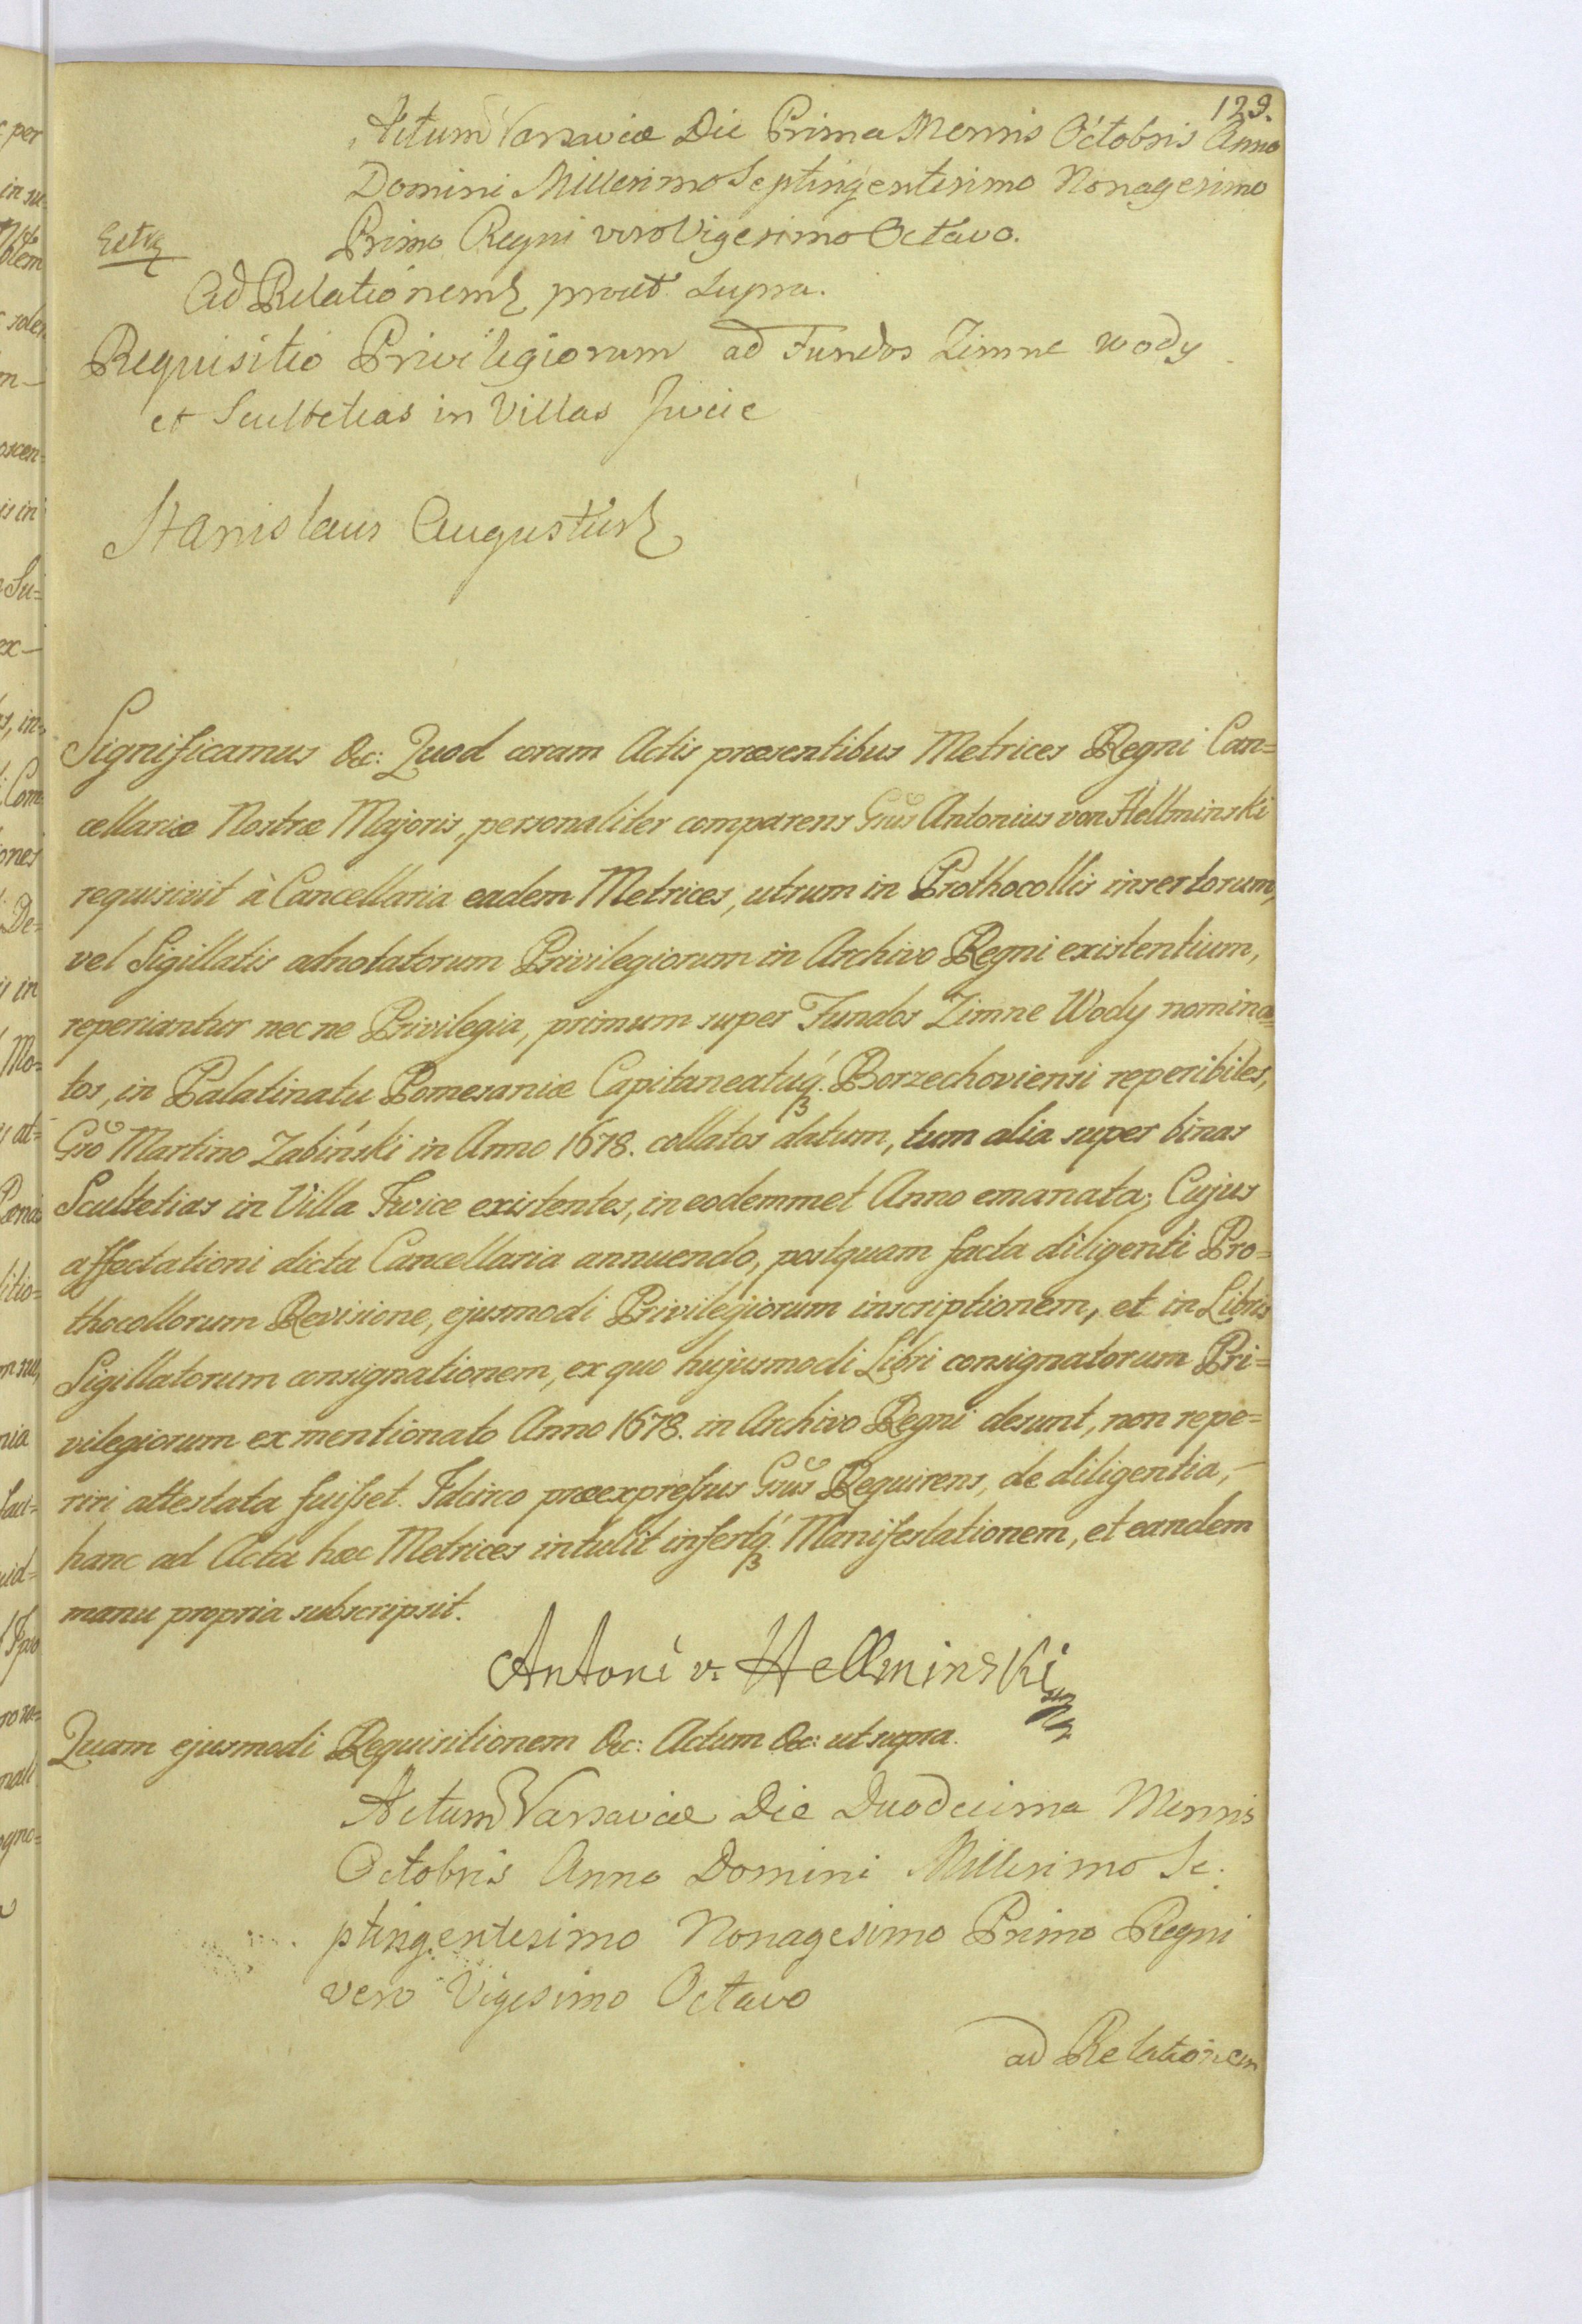 129.
Actum Varsaviæ Die Prima Mensis Octobris Anno
Domini Millesimo Septingentesimo Nonagesimo
Primo Regni vero Vigesimo Octavo.
Ad Relationem prout Supra.
Requisitio Privilegiorum ad Fundos Zimne wody
et Scultetias in Villas Iwice
Stanislaus Augustus
Significamus &c: Quod coram Actis præsentibus Metrices Regni Can=
cellariæ Nostræ Majoris, personaliter comparens Gnūs Antonius von Hellminski
requisivit à Cancellaria eadem Metrices, utrum in Prothocollis insertorum,
vel Sigillatis adnotatorum Privilegiorum in Archivo Regni existentium,
reperiantur nec ne Privilegia, primum super Fundos Zimne Wody nomina=
tos, in Palatinatu Pomeraniæ Capitaneatuq́3. Borzechoviensi reperibiles,
Gnō Martino Zabiński in Anno 1678. collatos datum, tum alia super binas
Scultetias in Villa Iwice existentes, in eodemmet Anno emanata; Cujus
affectationi dicta Cancellaria annuendo, postquam facta diligenti Pro=
thocollorum Revisione, ejusmodi Privilegiorum inscriptionem, et in Libris
Sigillatorum consignationem, ex quo hujusmodi Libri consignatorum Pri=
vilegiorum ex mentionato Anno 1678. in Archivo Regni desunt, non repe=
riri attestata fuisset. Idcirco præexpressus Gnūs Requirens, de diligentia,
hanc ad Acta hæc Metrices intulit insertq́3. Manifestationem, et eandem
manu propria subscripsit.
Antoni v. Hellminski
Quam ejusmodi Requisitionem &c: Actum &c: ut supra.
Actum Varsaviæ Die Duodecima Mensis
Octobris Anno Domini Millesimo Se.
ptingentesimo Nonagesimo Primo Regni
vero Vigesimo Octavo
ad Relationem